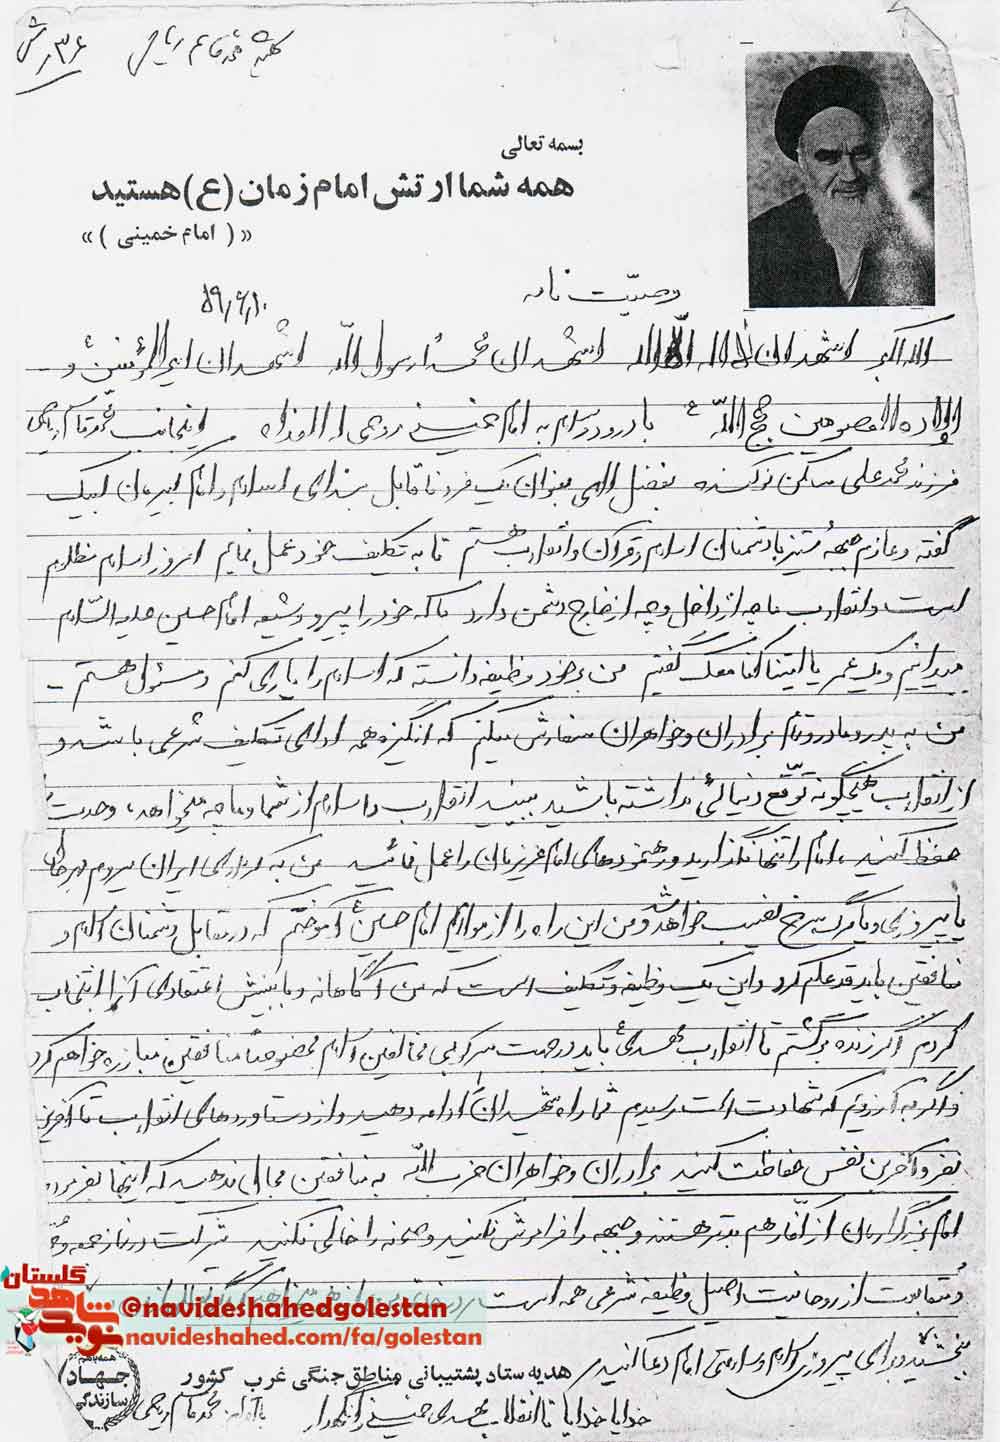 بسمه تعالی
همه شما ارتش امام زمان (ع) هستید
«( امام خمینی )»
وصیّت نامه
۵۹/۶/۱۰
الله اکبر اشهد ان لا اله الا الله اشهد ان محمداً رسول الله اشهد ان امیرالمؤمنین و
اولاده المعصومین حجج الله با درود و سلام به امام خمینی روحی له الفداه اینجانب محمد قاسم ریاحی
فرزند محمد علی ساکن توکسنده بفضل الهی بعنوان یک فرد ناقابل به ندای اسلام و امام کبیرمان لبیک
گفته و عازم جبهه ستیز با دشمنان اسلام و قرآن و انقلاب هستم تا به تکلیف خود عمل نمایم امروز اسلام مظلوم
است و انقلاب ما چه از داخل و چه از خارج دشمن دارد ما که خود را پیرو و شیعه امام حسین علیه السّلام
میدانیم و یک عمر یا لیتنا کنا معک گفتیم من بر خود وظیفه دانسته که اسلام را یاری کنم و مسئول هستم -
من به پدر و مادر و تمام برادران و خواهران سفارش میکنم که انگیزه همه ادای تکلیف شرعی باشد و
از انقلاب هیچگونه توقّع دنیائی نداشته باشید ببینید انقلاب و اسلام از شما و ما چه میخواهد، وحدت
حفظ کنید، امام را تنها نگذارید و رهنمودهای امام عزیزمان را عمل نمائید من به
یا پیروزی و یا مرگ سرخ نصیب خواهد شد و من این راه را از مولایم امام حسین آموختم که در مقابل دشمنان اسلام و
منافقین باید قد علم کرد و این یک وظیفه و تکلیف است که من آگاهانه و با بینش اعتقادی آنرا انتخاب
کردم اگر زنده برگشتم تا انقلاب مهدی باید در جهت سرکوبی مخالفین اسلام مخصوصاً منافقین مبارزه خواهم کرد
و اگر به آرزویم که شهادت است رسیدم شما راه شهیدان ادامه دهید و از دستاوردهای انقلاب تا آخرین
نفر و آخرین نفس حفاظت کنید برادران و خواهران حزب الله به منافقین مجالی ندهید که اینها بفرموده
امام بزرگوارمان از کفار هم بدتر هستند و جبهه را فراموش نکنید و صحنه را خالی نکنید شرکت در نماز جمعه و
و متابعت از روحانیت اصیل وظیفه شرعی همه است
ببخشید و برای پیروزی اسلام و سلامتی امام دعا کنید
خدایا خدایا تا انقلاب مهدی خمینی را نگهدار
محمد قاسم ریاحی
هدیه ستاد پشتیبانی مناطق جنگی غرب کشور
همه با هم
جهاد
سازندگی
گلستان
نوید شاهد
@navideshahedgolestan
navideshahed.com/fa/golestan